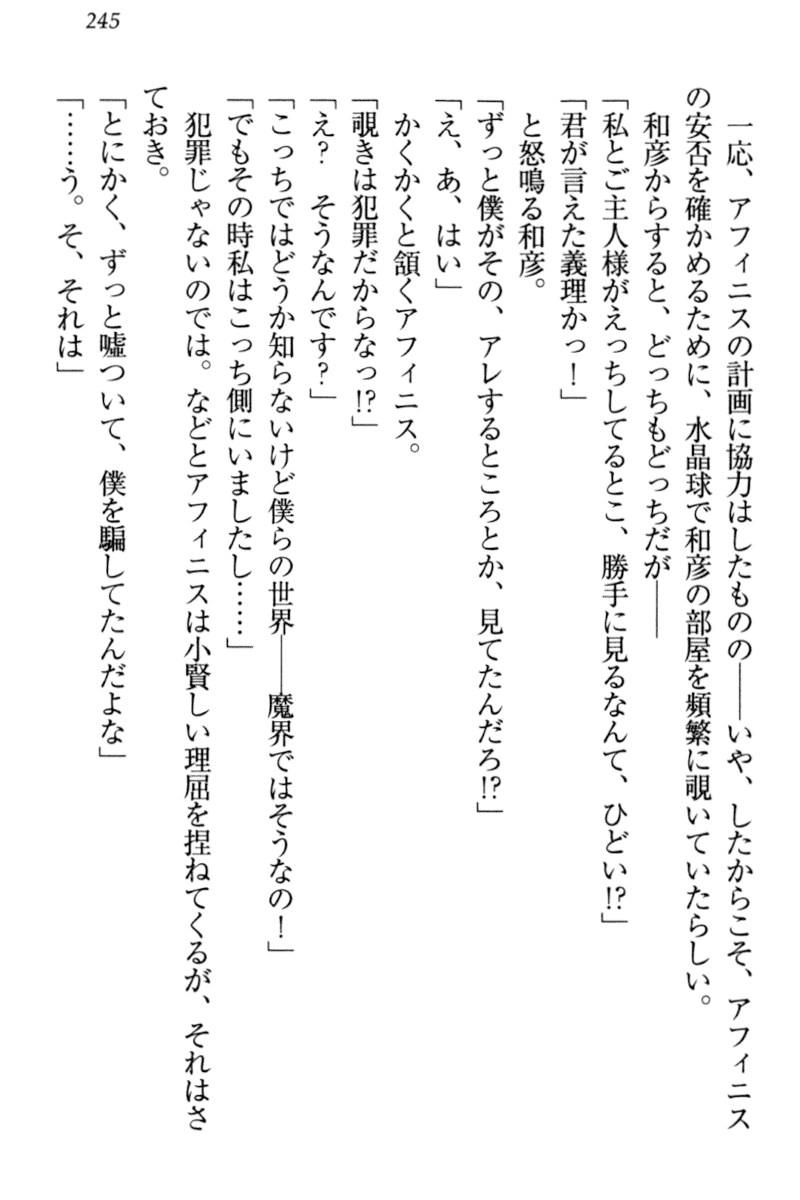 245
一応、アフィニスの計画に協力はしたものの――いや、したからこそ、アフィニス
の安否を確かめるために、水晶球で和彦の部屋を頻繁に覗いていたらしい。
和彦からすると、どっちもどっちだが――
「私とご主人様がえっちしてるとこ、勝手に見るなんて、ひどい!?」
「君が言えた義理かっ！」
と怒鳴る和彦。
「ずっと僕がその、アレするところとか、見てたんだろ!?」
「え、あ、はい」
かくかくと頷くアフィニス。
「覗きは犯罪だからなっ!?」
「え？　そうなんです？」
「こっちではどうか知らないけど僕らの世界――魔界ではそうなの！」
「でもその時私はこっち側にいましたし……」
犯罪じゃないのでは。などとアフィニスは小賢しい理屈を捏ねてくるが、それはさ
ておき。
「とにかく、ずっと嘘ついて、僕を騙してたんだよな」
「……う。そ、それは」